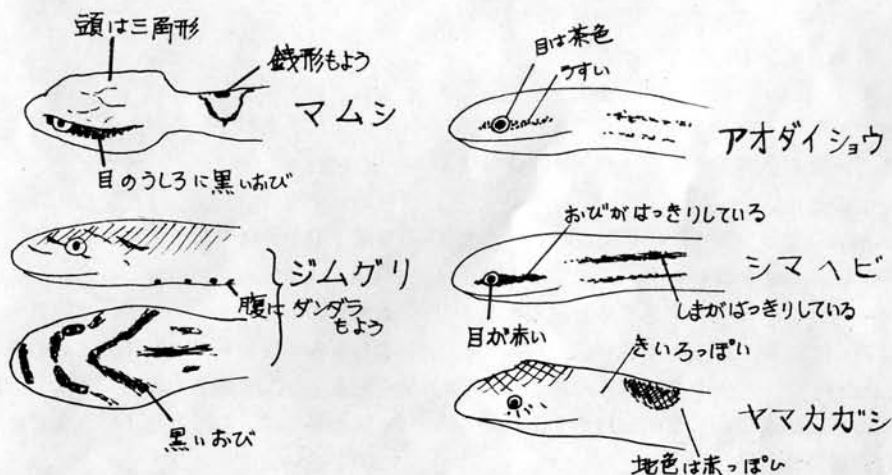 頭は三角形
銭形もよう
マムシ
目のうしろに黒いおび
ジムグリ
腹にダンダラ
もよう
黒いおび
目は茶色
うすい
アオダイショウ
おびがはっきりしている
シマヘビ
目が赤い
しまがはっきりしている
きいろっぽい
ヤマカガシ
地色は赤っぽい